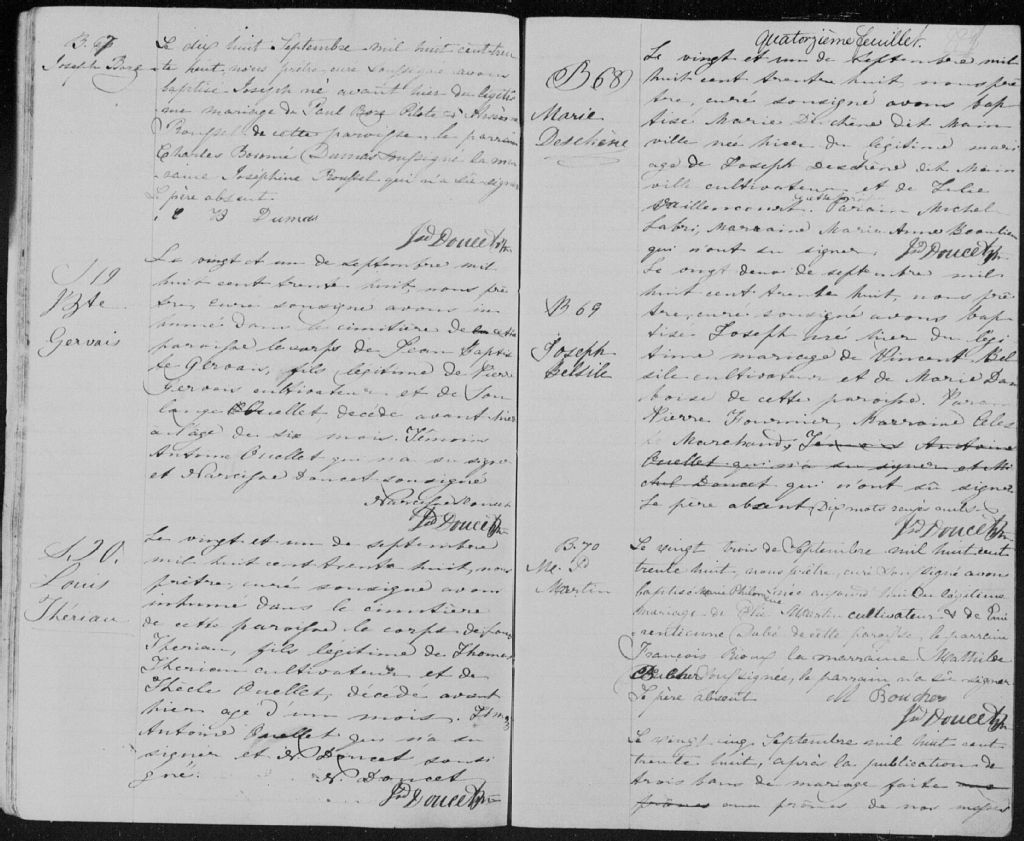 B. 67
Joseph Bosse
Le dix huit Septembre mil huit cent tren-
te huit, nous prêtre, curé soussigné avons
baptisé Joseph né avant hier du légiti-
me mariage de Paul Pilote &
Roussel de cette paroisse le parrain
Charles Dumas soussigné la mar-
raine Josephine Roussel qui n'a su signer
Le père absent.
Dumas
Jsd Doucet Ptre
S 19
J Bte
Gervais
Le vingt et un de septembre mil
huit cent trente huit, nous prê-
tre, curé sousigné avons in-
humé dans le cimitière de cette
paroisse le corps de Jean Baptis-
te Gervais, fils légitime de Pierre
Gervais cultivateur et de Sou-
lange Ouellet, décédé avant hier
a l'age de six mois. Témoins
Antoine Ouellet qui n'a su signer
et Narcisse Doucet sousigné
Narcisse Doucet
Jsd Doucet Ptre
S. 20.
Louis
Thériau
Le vingt et un de septembre
mil huit cent trente huit, nous
prêtre, curé sousigné avons
inhumé dans le cimitière
de cette paroisse le corps de Louis
Theriau, fils legitime de Thomas
Theriau cultivateur et de
Thècle Ouellet, décédé avant
hier agé d'un mois. Témoins
Antoine Ouellet qui n'a su
signer et N. Doucet sousi
gné.
N. Doucet
Jsd Doucet Ptre
Quatorzième feuillet.
B 68
Marie
Deschène
Le vingt et un de septembre mil
huit cent trente huit nous prê
tre, curé sousigné avons bap
tisé Marie Dechêne dit Main
ville née hier du légitime mari
age de Joseph Deschène dit Main
ville cultivateur et de Julie
Vaillencourt. Parain Michel
Labri, Marraine Marie Anne Beaulieu
qui n'ont su signer. Jsd Doucet Ptre
Le vingt deux de septembre mil
huit cent trente huit, nous prê
tre, curé sousigné avons bap
tisé Joseph né hier du légi
time mariage de Vincent Bel
sile cultivateur et de Marie Dam
boise de cette paroisse. Parain
Pierre Fournier, Marraine
B 69
Joseph
Belsile
Marchand, Témoins Antoine
Ouellet qui n'a su signer et Mi
chel Doucet qui n'ont su signer
Le père absent Dix mots rayés nuls.
Jsd Doucet Ptre
B. 70
M. P
Martin
Le vingt trois de Septembre mil huit cent
trente huit, nous prêtre, curé soussigné avons
baptisé Marie née aujourd'hui du légitime
mariage de Martin cultivateur & de
de cette paroisse, le parrain
François Rioux la marraine Mathilde
Boucher soussignée, le parrain n'a su signer
Le père absent M Boucher
Jsd Doucet Ptre
Le vingt cinq Septembre mil huit cent
trente huit, après la publication de
trois bans de mariage faite
prônes aux prônes de nos messes